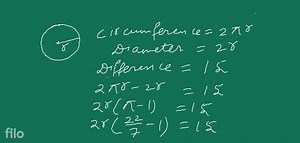 r
Circumference = 2πr
Diameter = 2r
Difference = 15
2πr - 2r = 15
2r(π-1) = 15
2r(22/7 - 1) = 15
filo